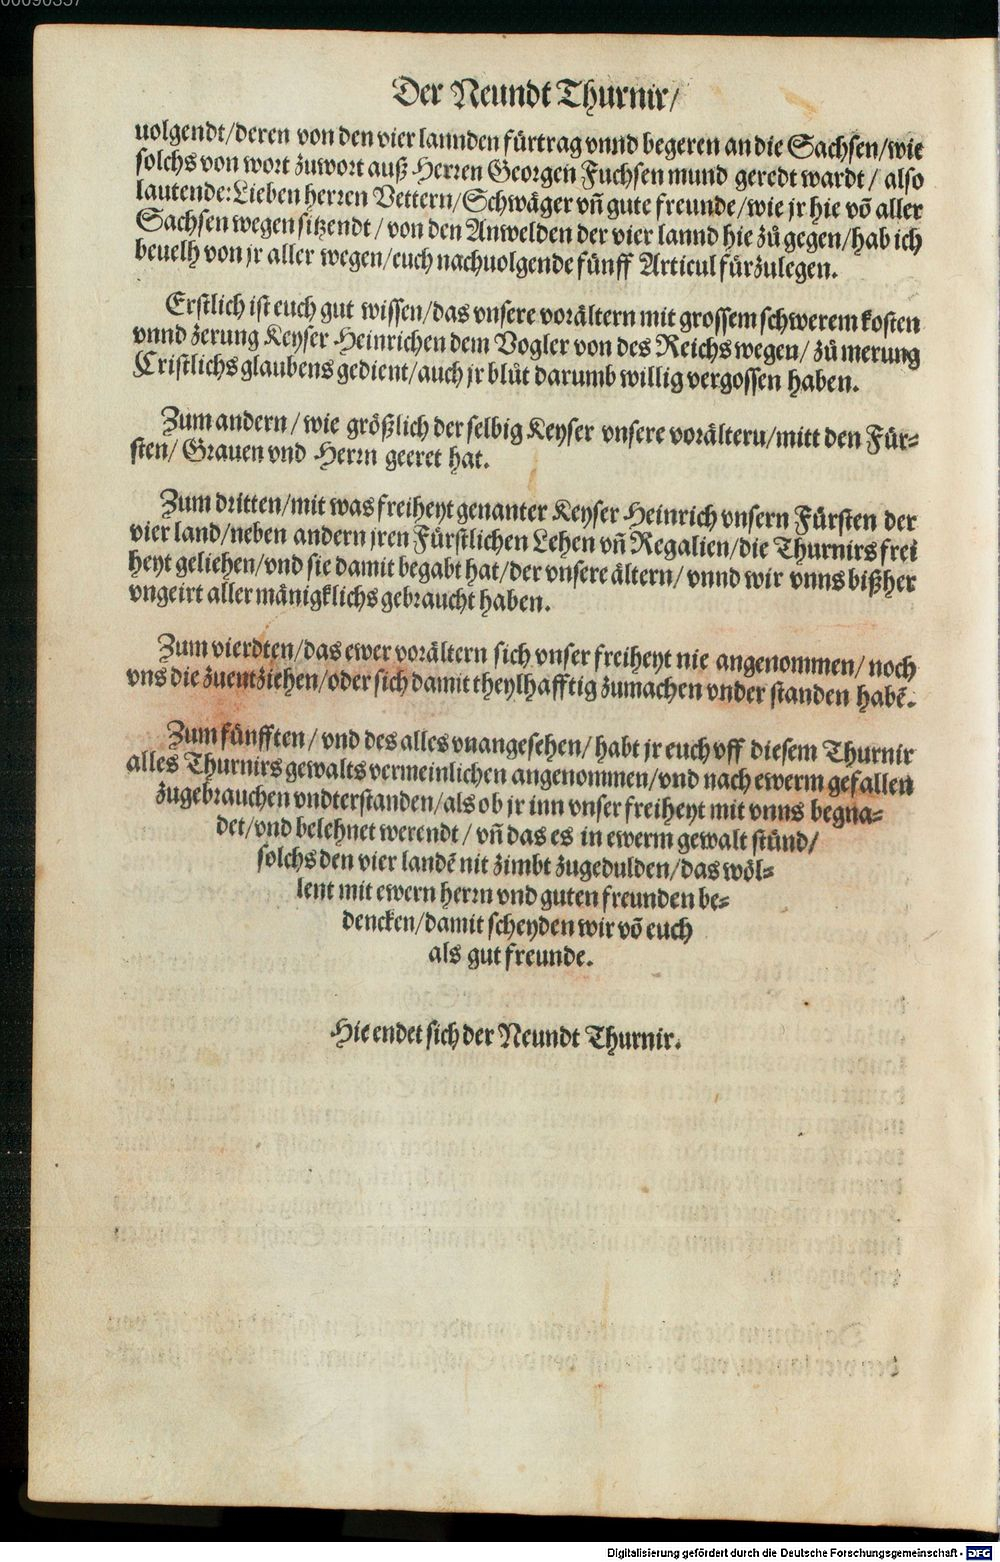 Der Neundt Thurnir/
uolgendt/deren von den vier lannden fürtrag vnnd begeren an die Sachsen/wie
solchs von wort zuwort auß Herren Georgen Fuchsen mund geredt wardt/ also
lautende: Lieben herren Vettern/Schwäger vñ gute freunde/wie jr hie võ aller
Sachsen wegen sitzendt/ von den Anwelden der vier lannd hie zů gegen/hab ich
beuelh von jr aller wegen/euch nachuolgende fünff Articul fürzulegen.
Erstlich ist euch gut wissen/das vnsere vorältern mit grossem schwerem kosten
vnnd zerung Keyser Heinrichen dem Vogler von des Reichs wegen/ zů merung
Cristlichs glaubens gedient/auch jr blůt darumb willig vergossen haben.
Zum andern/ wie größlich der selbig Keyser vnsere vorälteru/mitt den Für⸗
sten/ Grauen vnd Herrn geeret hat.
Zum dritten/mit was freiheyt genanter Keyser Heinrich vnsern Fürsten der
vier land/neben andern jren Fürstlichen Lehen vñ Regalien/die Thurnirs frei
heyt geliehen/vnd sie damit begabt hat/der vnsere ältern/ vnnd wir vnns bißher
vngeirt aller mänigklichs gebraucht haben.
Zum vierdten/das ewer vorältern sich vnser freiheyt nie angenommen/ noch
vns die zuentziehen/oder sich damit theylhafftig zumachen vnder standen habẽ.
Zum fünfften/ vnd des alles vnangesehen/ habt jr euch vff diesem Thurnir
alles Thurnirs gewalts vermeinlichen angenommen/vnd nach ewerm gefallen
zugebrauchen vndterstanden/als ob jr inn vnser freiheyt mit vnns begna⸗
det/vnd belehnet werendt/ vñ das es in ewerm gewalt stünd/
solchs den vier landẽ nit zimbt zugedulden/das wöl⸗
lent mit ewern herrn vnd guten freunden be⸗
dencken/damit scheyden wir võ euch
als gut freunde.
Hie endet sich der Neundt Thurnir.
Digitalisierung gefördert durch die Deutsche Forschungsgemeinschaft - DFG